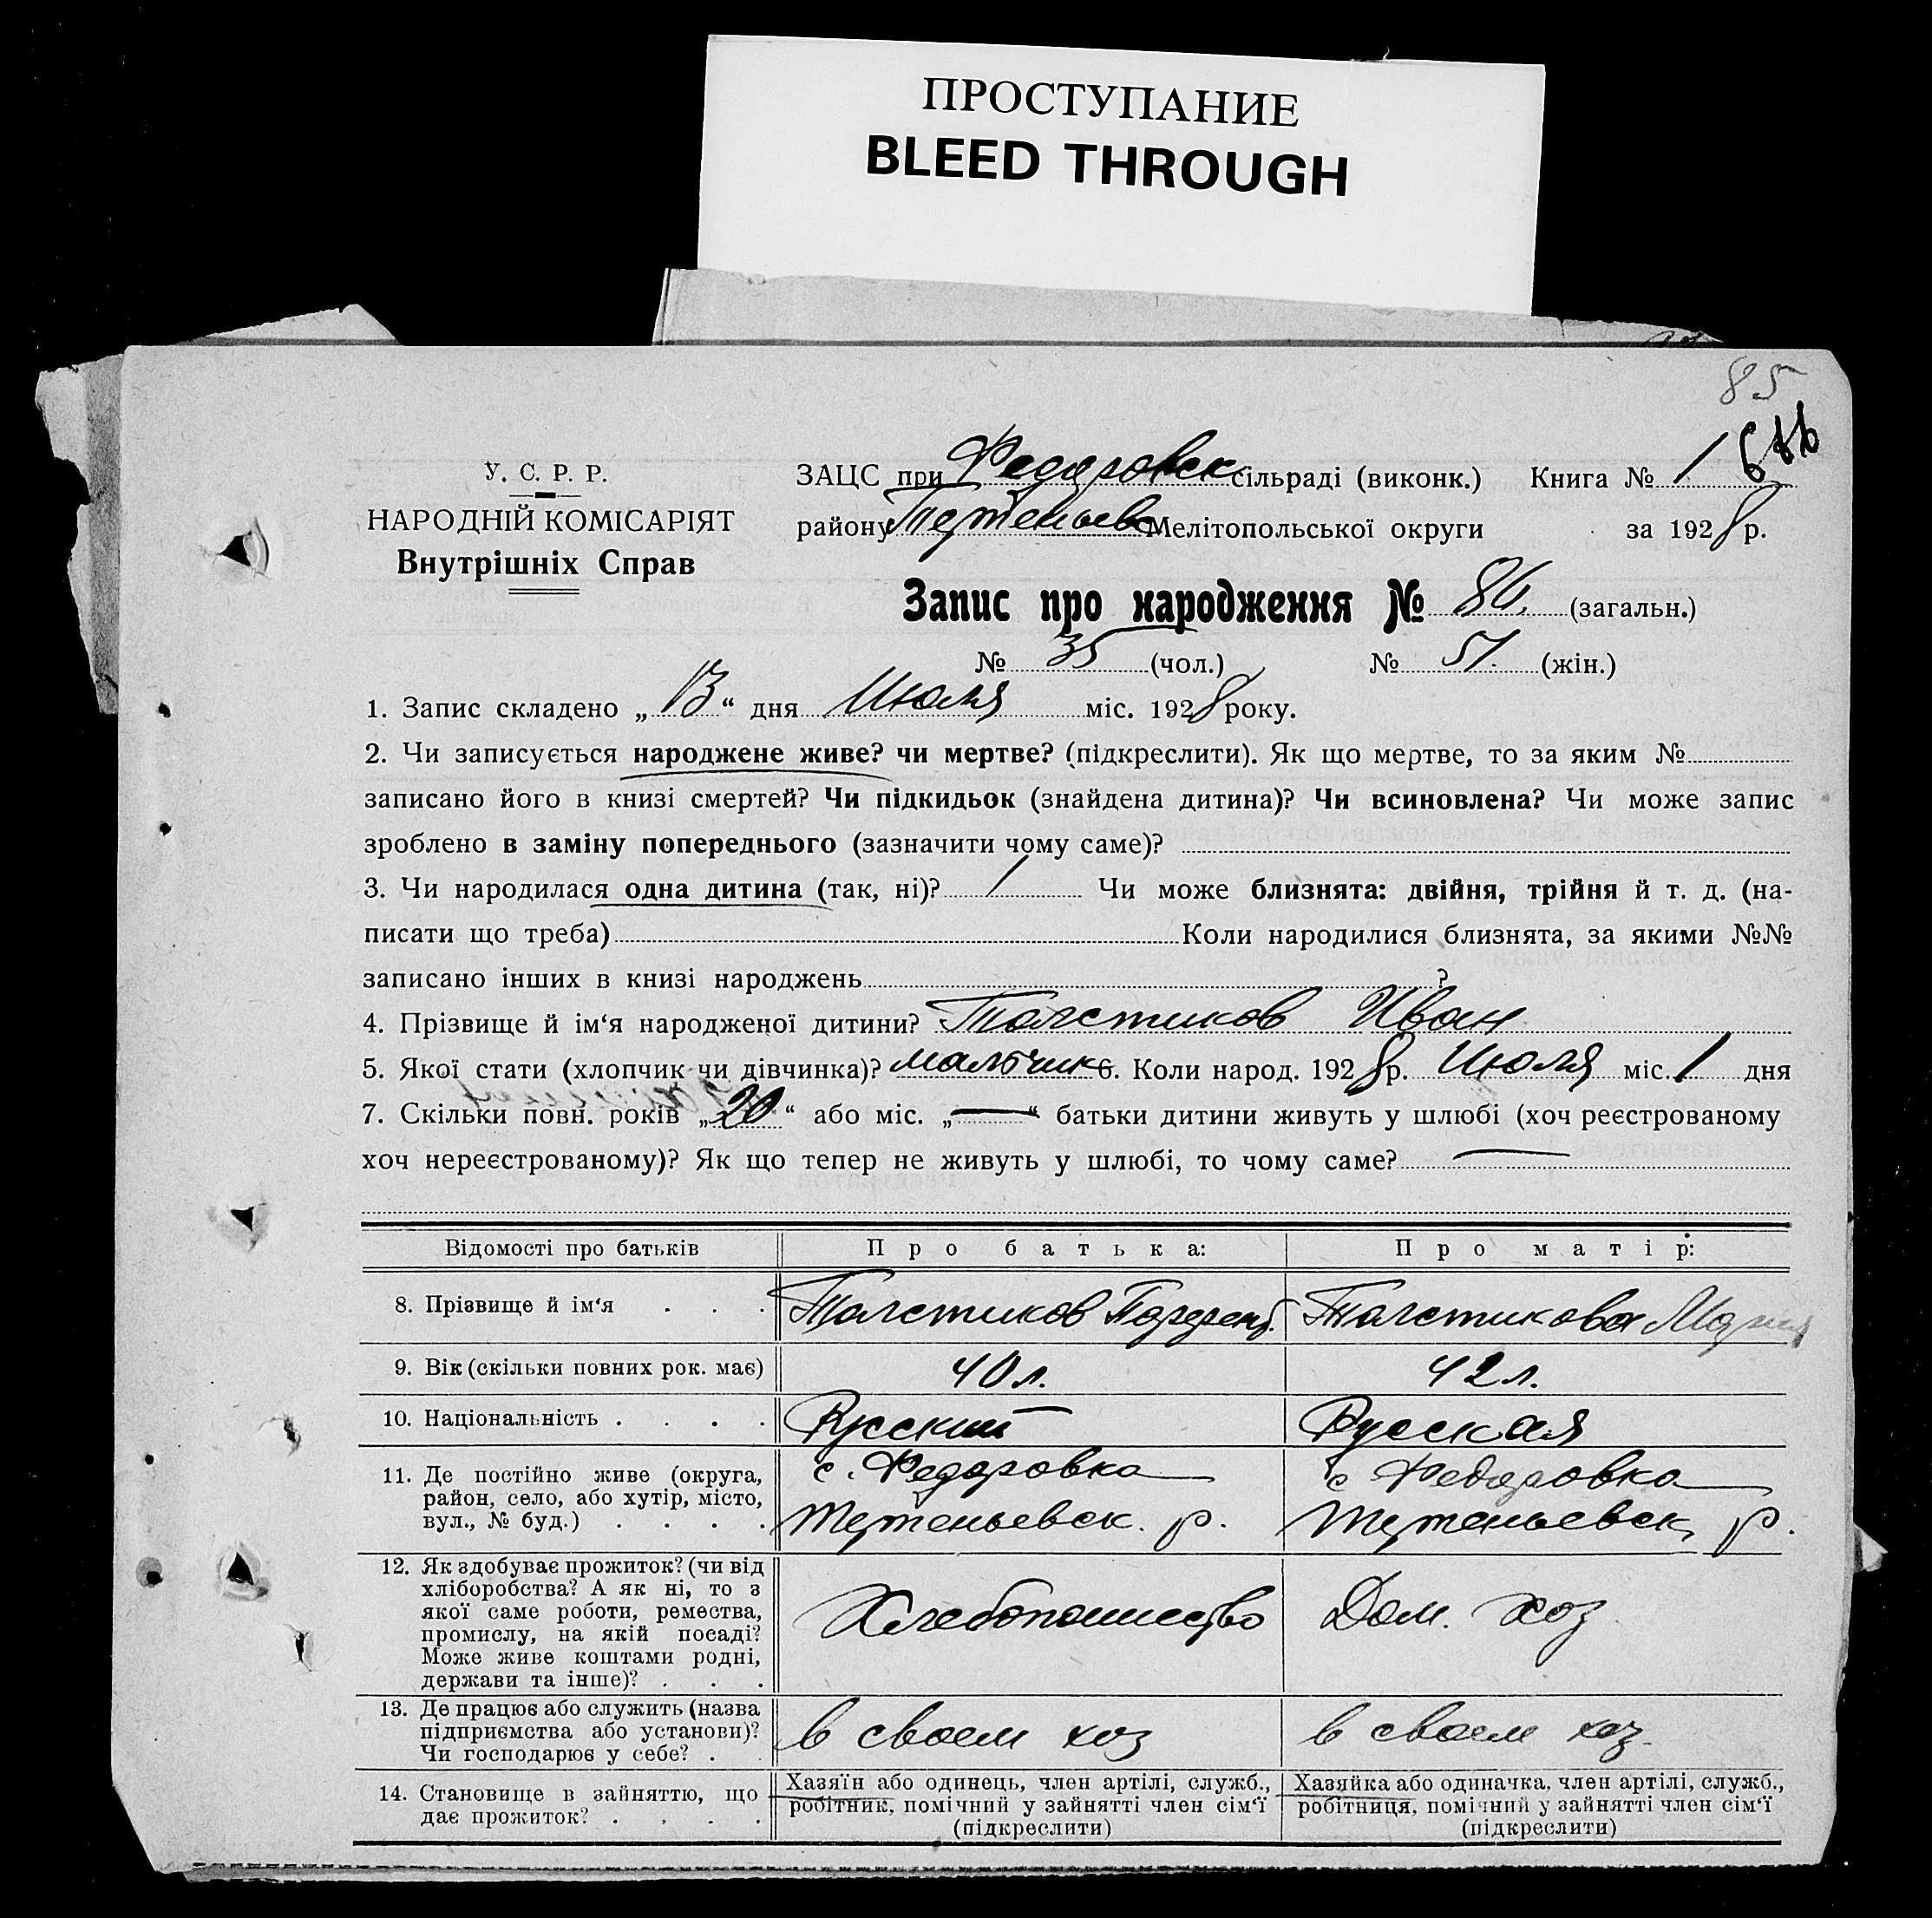 ПРОСТУПАНИЕ
BLEED THROUGH
85
У. С. Р. Р.
НАРОДНІЙ КОМІСАРІЯТ
Внутрішніх Справ
ЗАЦС при Федоровск сільраді (виконк.) Книга № 1
району Мелітопольської округи за 1928 р.
Запис про народження № 86. (загальн.)
№ 35 (чол.) № 51. (жін.)
1. Запис складено „13“ дня Июля міс. 1928 року.
2. Чи записується народжене живе? чи мертве? (підкреслити). Як що мертве, то за яким №
записано його в книзі смертей? Чи підкидьок (знайдена дитина)? Чи всиновлена? Чи може запис
зроблено в заміну попереднього (зазначити чому саме)?
3. Чи народилася одна дитина (так, ні)? 1 Чи може близнята: двійня, трійня й т. д. (на-
писати що треба) Коли народилися близнята, за якими №№
записано інших в книзі народжень ?
4. Прізвище й ім‘я народженої дитини? Толстиков Иван
5. Якої стати (хлопчик чи дівчинка)? мальчик 6. Коли народ. 1928 р. Июля міс. 1 дня
7. Скільки повн. років „20“ або міс. „—“ батьки дитини живуть у шлюбі (хоч реєстрованому
хоч нереєстрованому)? Як що тепер не живуть у шлюбі, то чому саме? —
Відомості про батьків Про батька: Про матір:
8. Прізвище й ім‘я . . . Толстиков Парфент. Толстикова Мария
9. Вік (скільки повних рок. має) 40 л. 42 л.
10. Національність . . . . Русский Русская
11. Де постійно живе (округа, с. Федоровка с Федоровка
район, село, або хутір, місто,
вул., № буд.) . . . . р. р.
12. Як здобуває прожиток? (чи від
хліборобства? А як ні, то з
якої саме роботи, ремества, Хлебопашество Дом. хоз
промислу, на якій посаді?
Може живе коштами родні,
держави та інше)? . . .
13. Де працює або служить (назва
підприємства або установи)? в своем хоз в своем хоз.
Чи господарює у себе? . .
14. Становище в зайняттю, що Хазяїн або одинець, член артілі, служб., Хазяйка або одиначка, член артілі, служб.,
дає прожиток? . . . . робітник, помічний у зайнятті член сім‘ї робітниця, помічний у зайнятті член сім‘ї
(підкреслити) (підкреслити)